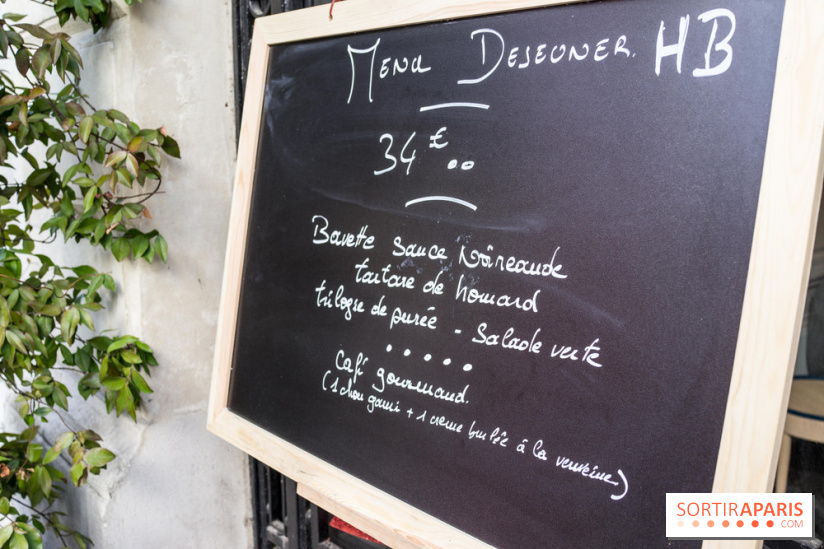 MENU DEJEUNER. HB
34 €..
Bavette sauce Noireaude
tartare de homard
trilogie de purée - Salade verte
.....
Café gourmand.
(1 chou garni + 1 creme brulée à la verveine)
SORTIRAPARIS
.COM